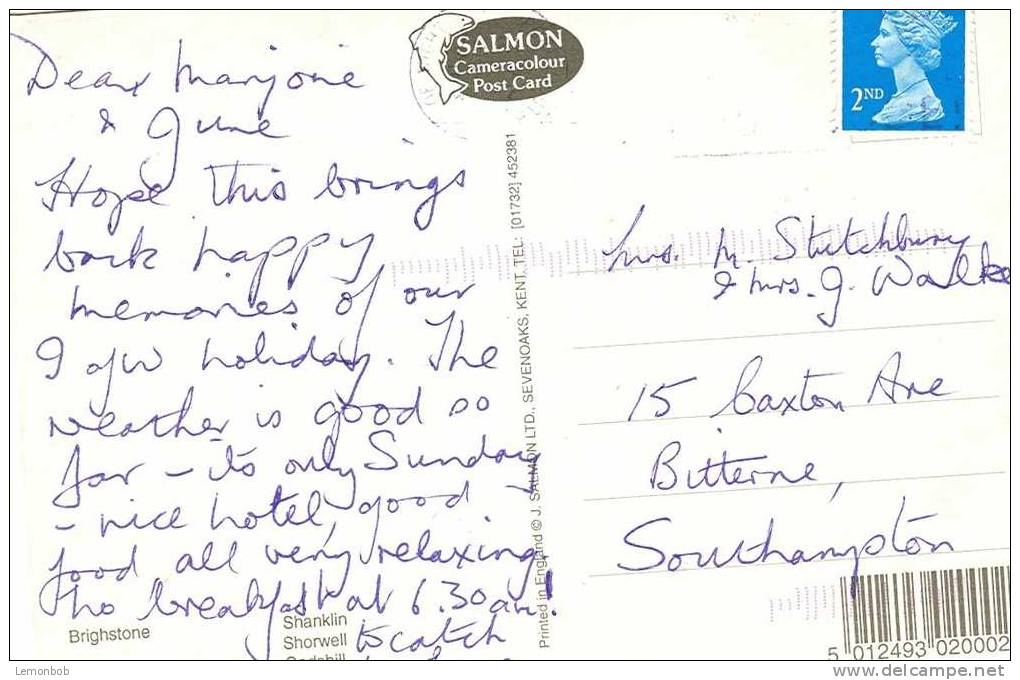 Dear Marjorie
& June
Hope this brings
back happy
memories of our
I of W holiday. The
weather is good so
far – its only Sunday
– nice hotel, good
food all very relaxing,
no breakfast at 6.30am!
to catch
Brighstone
Shanklin
Shorwell
Godshill
SALMON
Cameracolour
Post Card
Printed in England © J. SALMON LTD., SEVENOAKS, KENT. TEL: [01732] 452381
2ND
Mrs. M. Stutchbury
& Mrs. J. Walke
15 Caxton Ave
Bitterne,
Southampton
5 012493 020002
Lemonbob
www.delcampe.net